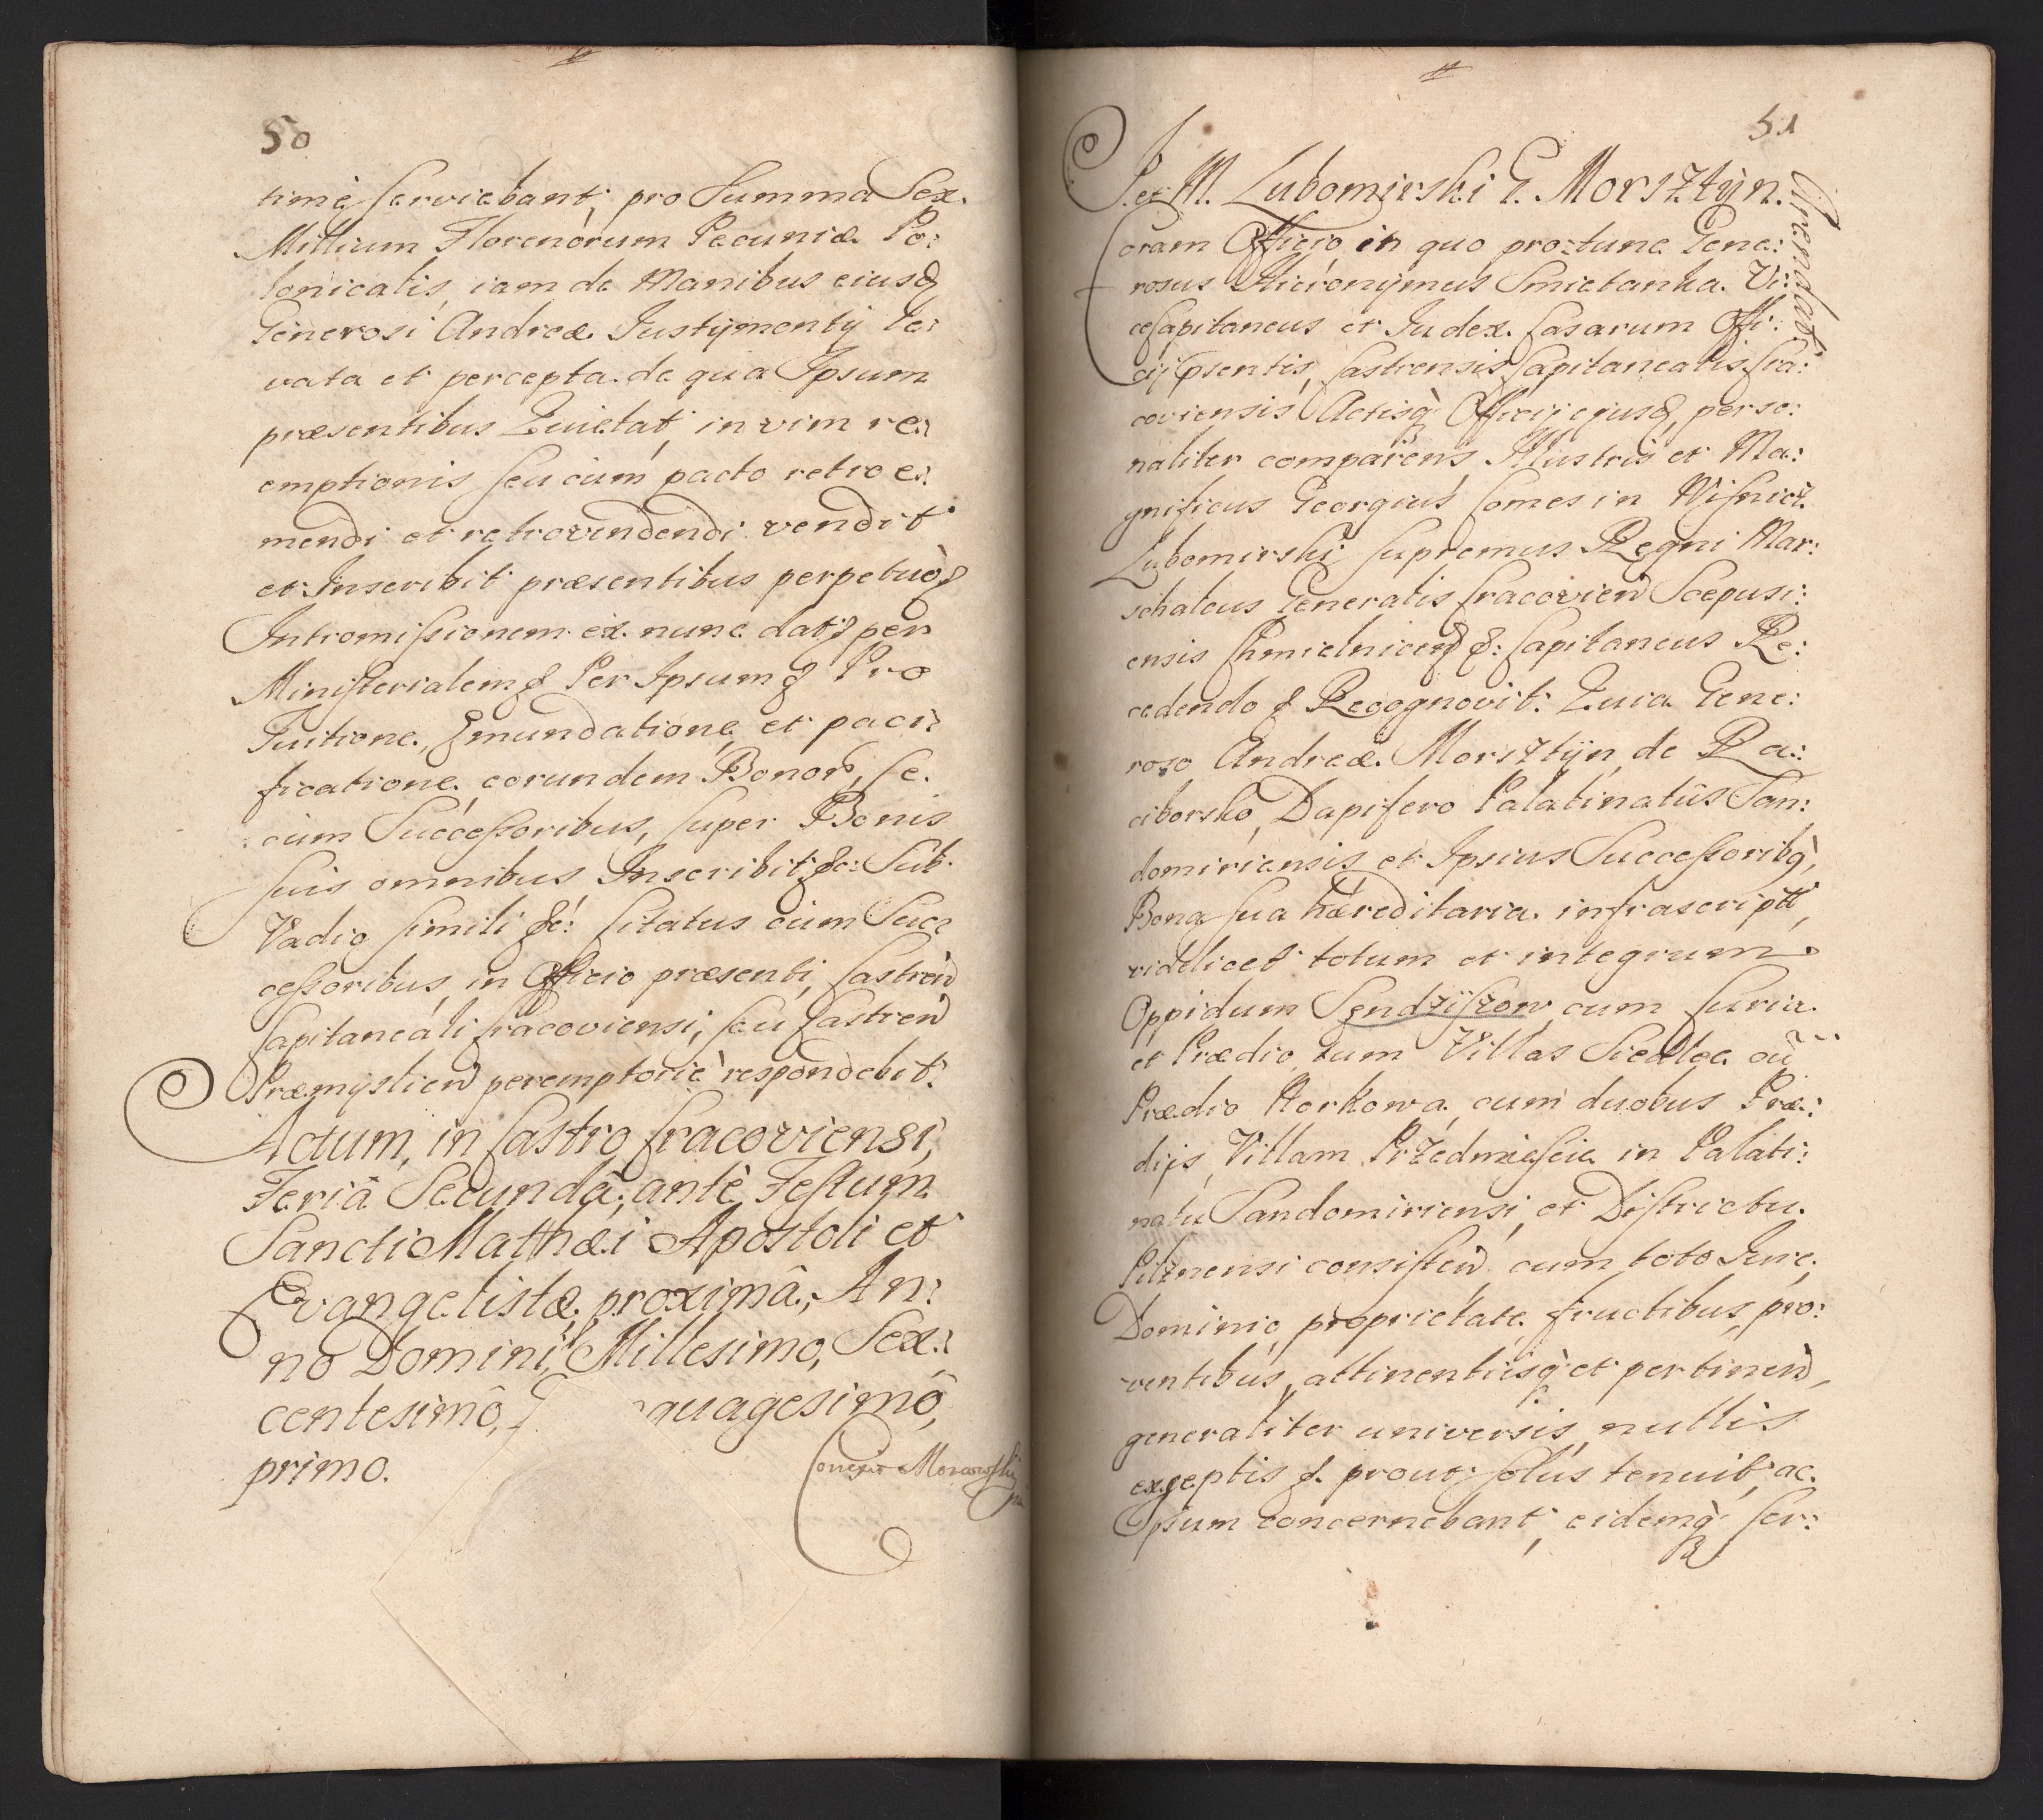 50
timè serviebant, pro Summa Sex.
Millium Florenorum Pecuniæ Po:
lonicalis, iam de Manibus eiusd
Generosi Andreæ Justÿmontÿ le:
vata et percepta. de qua Ipsum
præsentibus Quietat, in vim re:
emptionis seu cum pacto retro e:
mendi et retrovindendi vendit
et Inscribit præsentibus perpetuò &
Intromissionem ex nunc dat & per
Ministerialem & Per Ipsum & Pro
Tuitione, Emundatione, et paci:
ficatione eorundem Bonor, se.
cum Successoribus, super Bonis
suis omnibus Inscribit &c: Sub
Vadio simili &c: Citatus cum Suc:
cessoribus, in Officio præsenti, Castren
Capitaneali Cracoviensi, seu Castren
Præmyslien peremptoriè respondebit.
Actum, in Castro Cracoviensi,
Feriâ Secundâ, antè Festum
Sancti Matthæi Apostoli et
Evangelistæ, proximâ, An:
no Domini, Millesimo, Sex:
centesimô, quagesimô,
primo.
Correxit Morawski
51
I. et M. Lubomirski G. Morsztÿn.
Arendat
Coram Officio in quo pro tunc Gene:
rosus Hieronÿmus Smietanka. Vi:
ceCapitaneus et Judex Causarum Offi:
cÿ psentis, Castrensis Capitanealis Cra:
coviensis Actisq Officÿ ejusd, perso:
naliter comparens, Illustris et Ma:
gnificus Georgius Comes in Wisnicz
Lubomirski supremus Regni Mar:
schalcus Generalis Cracovien Scepusi:
ensis Chmielnicen &: Capitaneus Re:
cedendo & Recognovit. Quia Gene:
roso Andreæ Morsztÿn, de Ra:
ciborsko, Dapifero Palatinatûs San:
domiriensis et Ipsius Successoribq,
Bona sua hæreditaria infrascriptt,
videlicet totum et integrum
Oppidum Sendziszow cum Curia.
et Prædio, tum Villas Siedlec cu
Prædio Korkowa, cum duobus Præ:
dijs, Villam Przedmiescie in Palati:
natu Sandomiriensi, et Districtu.
Pilznensi consisten cum toto Jure,
Dominio, proprietate fructibus, pro:
ventibus, attinentiisq et pertinen,
generaliter universis, nullis
exceptis &. prout solus tenuit, ac.
Ipsum concernebant, eidemq ser: